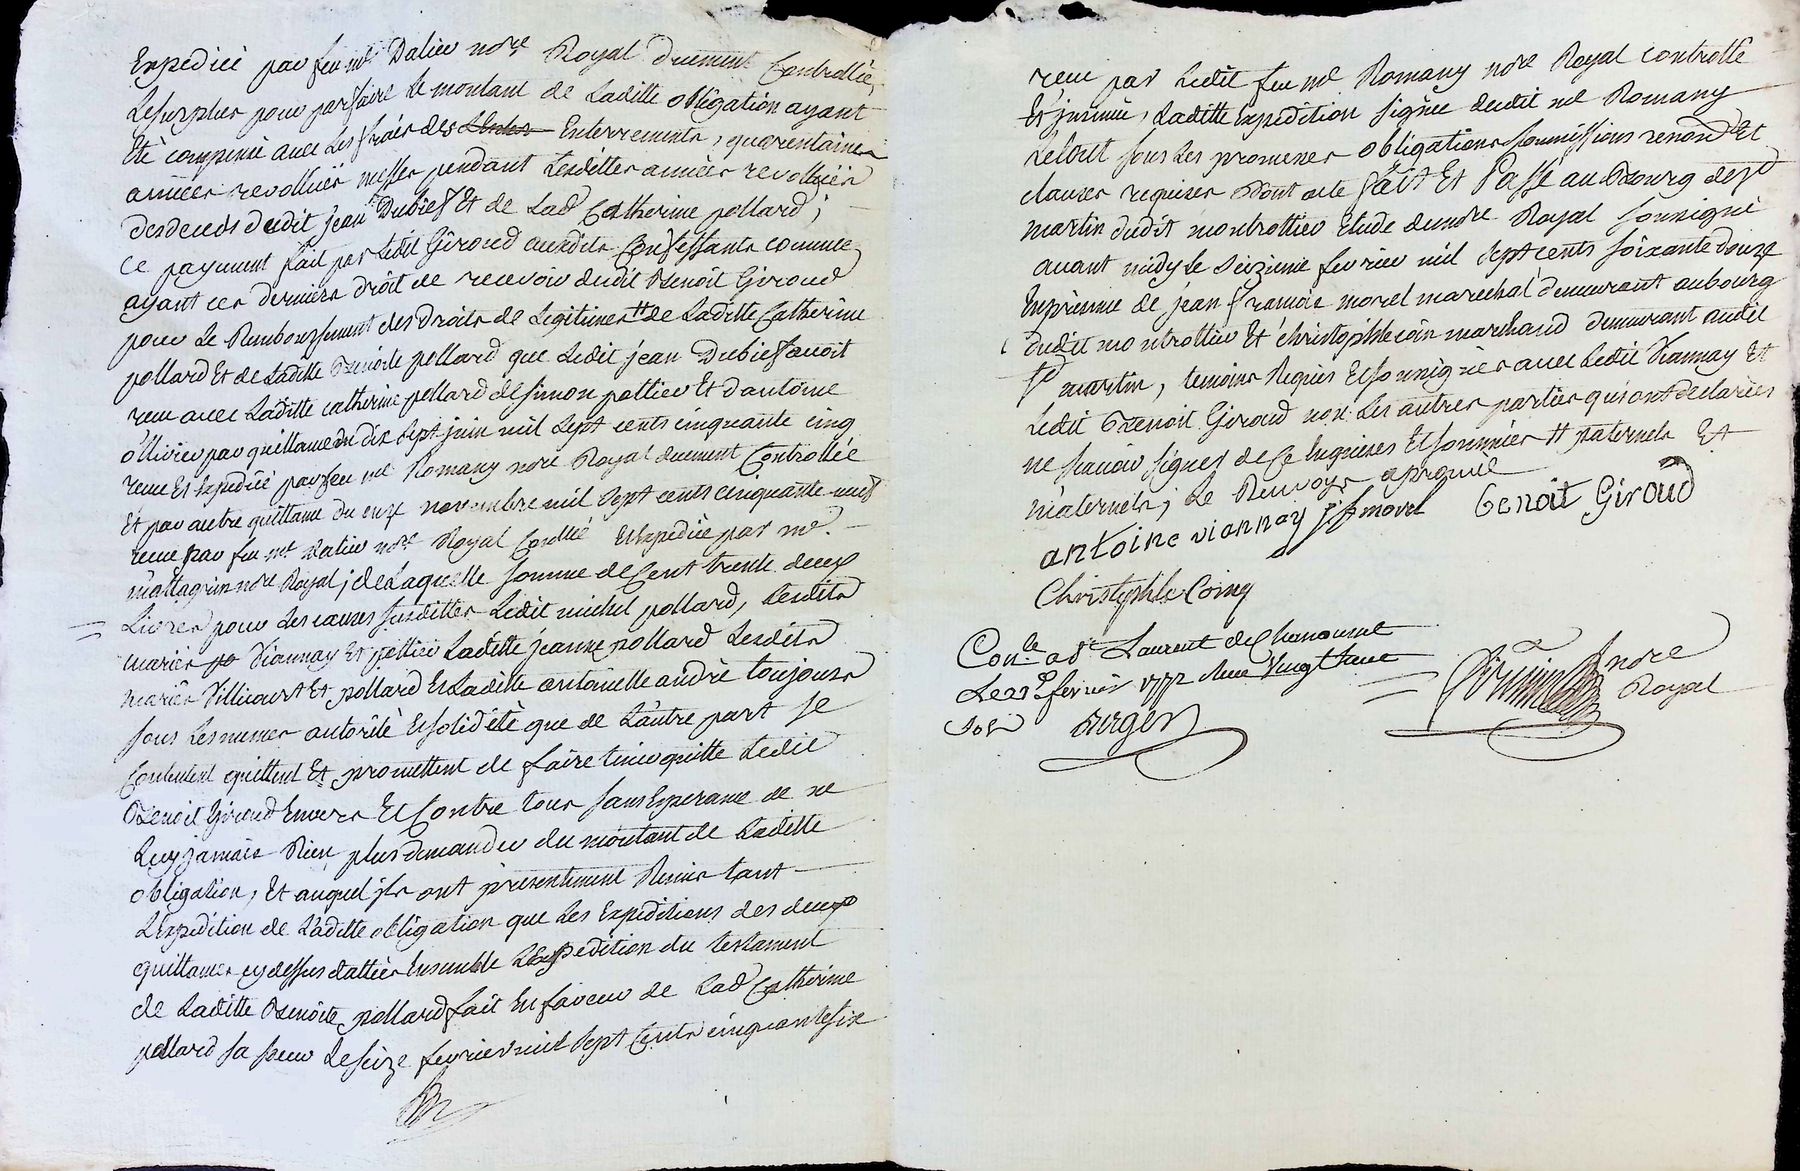 Expedieé par feu me Dalieu nore Royal duement Controllée,
Le surplus pour parfaire le montant de Laditte obligation ayant
Eté compensé avec Les fraies des Enterrements, quarentaines
années revollües messes pendant Lesdittes années revollües
des deceds dudit jean Dubief Et de Lad Catherine pollard;
Ce payement fait par Ledit Giroud auxdits Confessants comme
ayant ces derniers droit de recevoir dudit Benoit Giroud
pour Le Rembourssement des droits de Legitimes tt de Laditte Catherine
pollard Et de Laditte Benoite pollard que Ledit jean Dubief avoit
receu avec Laditte catherine pollard de simon pollieu Et d'antoine
ollivier par quittance du dix sept juin mil sept cents cinquante cinq
receue Et Expediée par feu me Romany nore Royal duement Controllée
Et par autre quittance du onze novembre mil sept cents cinquante neuf
receue par feu me Dalieu nore Royal Conllé Et Expediée par me
mattagrin nore Royal; de Laquelle somme de Cent trente deux
Livres pour les causes susdittes Ledit michel pollard, Lesdits
mariés Viannay Et pollieu Laditte jeanne pollard Lesdits
mariés Villicourt Et pollard Et Laditte antoinette andré toujours
sous Les mesmes autorité Et solidité que de L'autre part se
Contentent quittent Et promettent de faire tenir quitte Ledit
Benoit Giroud Envers Et Contre tous sans Esperance de ne
Luy jamais Rien plus demander du montant de Laditte
obligation, Et auquel jls ont presentement Remis tant
L'expedition de Laditte obligation que Les Expeditions des deux
quittances cy dessus dattées Ensemble L'expedition du testament
de Laditte Benoite pollard fait En faveur de Lad Catherine
pollard sa soeur Le seize fevrier mil sept Cents cinquante six
receu par Ledit feu me Romany nore Royal controllé
Et jnsinué, Laditte Expedition signée dudit me Romany
Le tout sous Les promesses obligations soumissions renond Et
clauses requises Dont acte fait Et Passé au Bourg de st
martin dudit montrottier Etude du nore Royal soussigné
avant midy le seizieme fevrier mil sept cents soixante douze
En presence de jean françois morel marechal demeurant au bourg
dudit montrottier Et christophle coin marchand demeurant audit
st martin, temoins Requis Et soussignés avec Ledit Viannay Et
Ledit Benoit Giroud non Les autres parties qui ont declarées
ne scavoir signer de Ce Enquises Et sommées tt paternels Et
maternels; Le Renvoys approuvé
antoine viannay jf morel Benoit Giroud
Christophle Coing
Conle a St Laurent de Chamousset
Le 29 fevrier 1772 Receu Vingt
nore
Royal